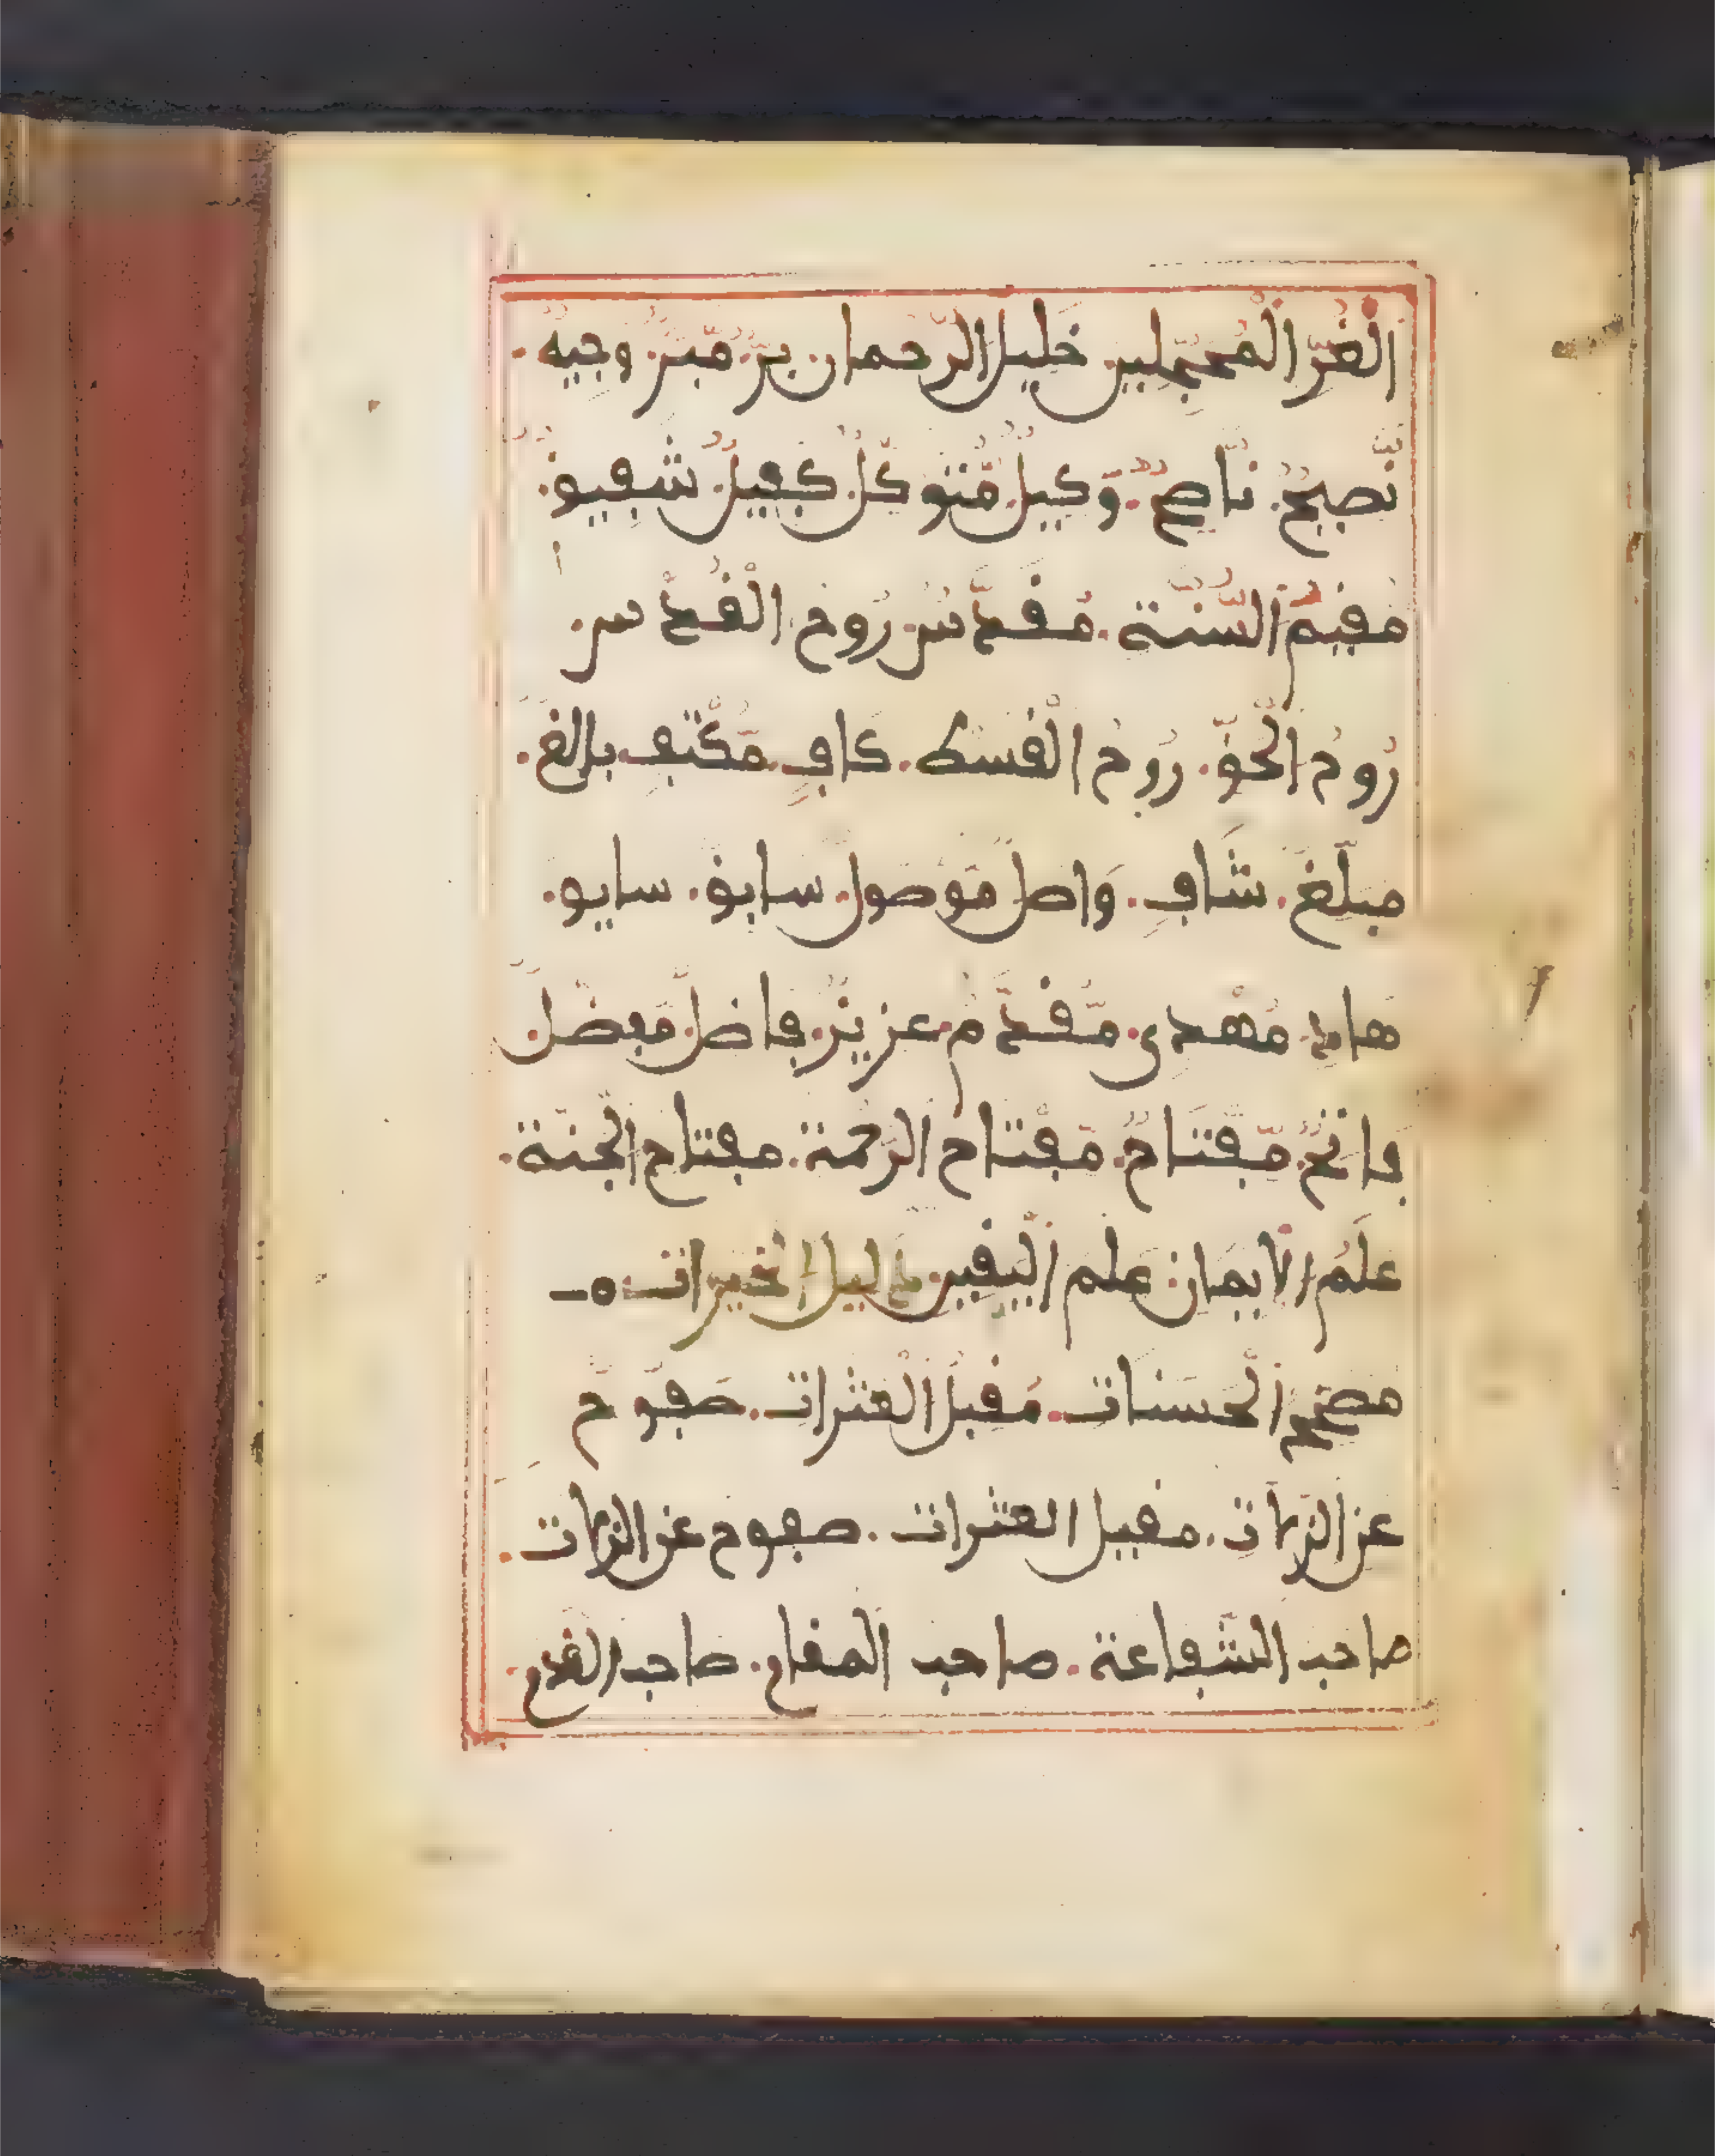 الغُرّ المُحجّلين خَليل الرّحمان برّ. مّبرّ. وجيهٌ.
نّصيحٌ. نّاصحٌ. وّكيلٌ. مّتوكّلٌ. كفيلٌ. شفيقٌ.
مُقيم السُّنّة. مُقدّس. رُوح القُدْس.
رُوح الحَقّ. رُوح القسط. كافٍ. مّكْتفٍ. بالغ.
مبلّغ. شَافٍ. وَاصل. مَوْصول. سابق. سايق.
هادٍ. مُهْدى. مّقدّم. عزيزٌ. فاضلٌ. مّفضّلٌ.
فاتحٌ. مّفْتاحٌ. مّفْتاح الرّحمة. مفتاح الجنّة.
علَمُ الايمان. علم اليَقين. دليل الخيرات.
مصحّح الحَسَنات. مُقيل العثرات. صَفوح
عن الزّلّات. مقيل العثرات. صفوح عن الزلات.
صاحب الشّفاعة. صاحب المقام. صاحب القدم.